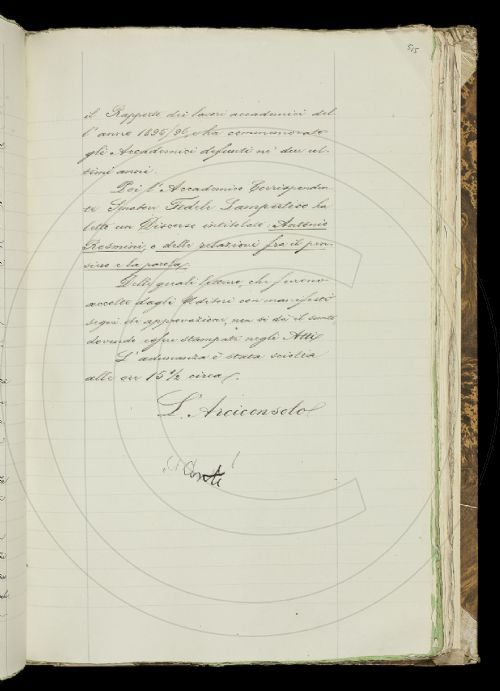 515
il Rapporto dei lavori accademici del-
l'anno 1895/96, e ha commemorato
gli Accademici defunti ne' due ul-
timi anni.
Poi l'Accademico Corrisponden-
te Senatore Fedele Lampertico ha
letto un Discorso intitolato: Antonio
Rosmini, e delle relazioni fra il pen-
siero e la parola.
Delle quali letture, che furono
accolte dagli Uditori con manifesti
segni di approvazione, non si dà il sunto
dovendo esser stampate negli Atti.
L'adunanza è stata sciolta
alle ore 15 1/2 circa.
L'Arciconsolo
Conti